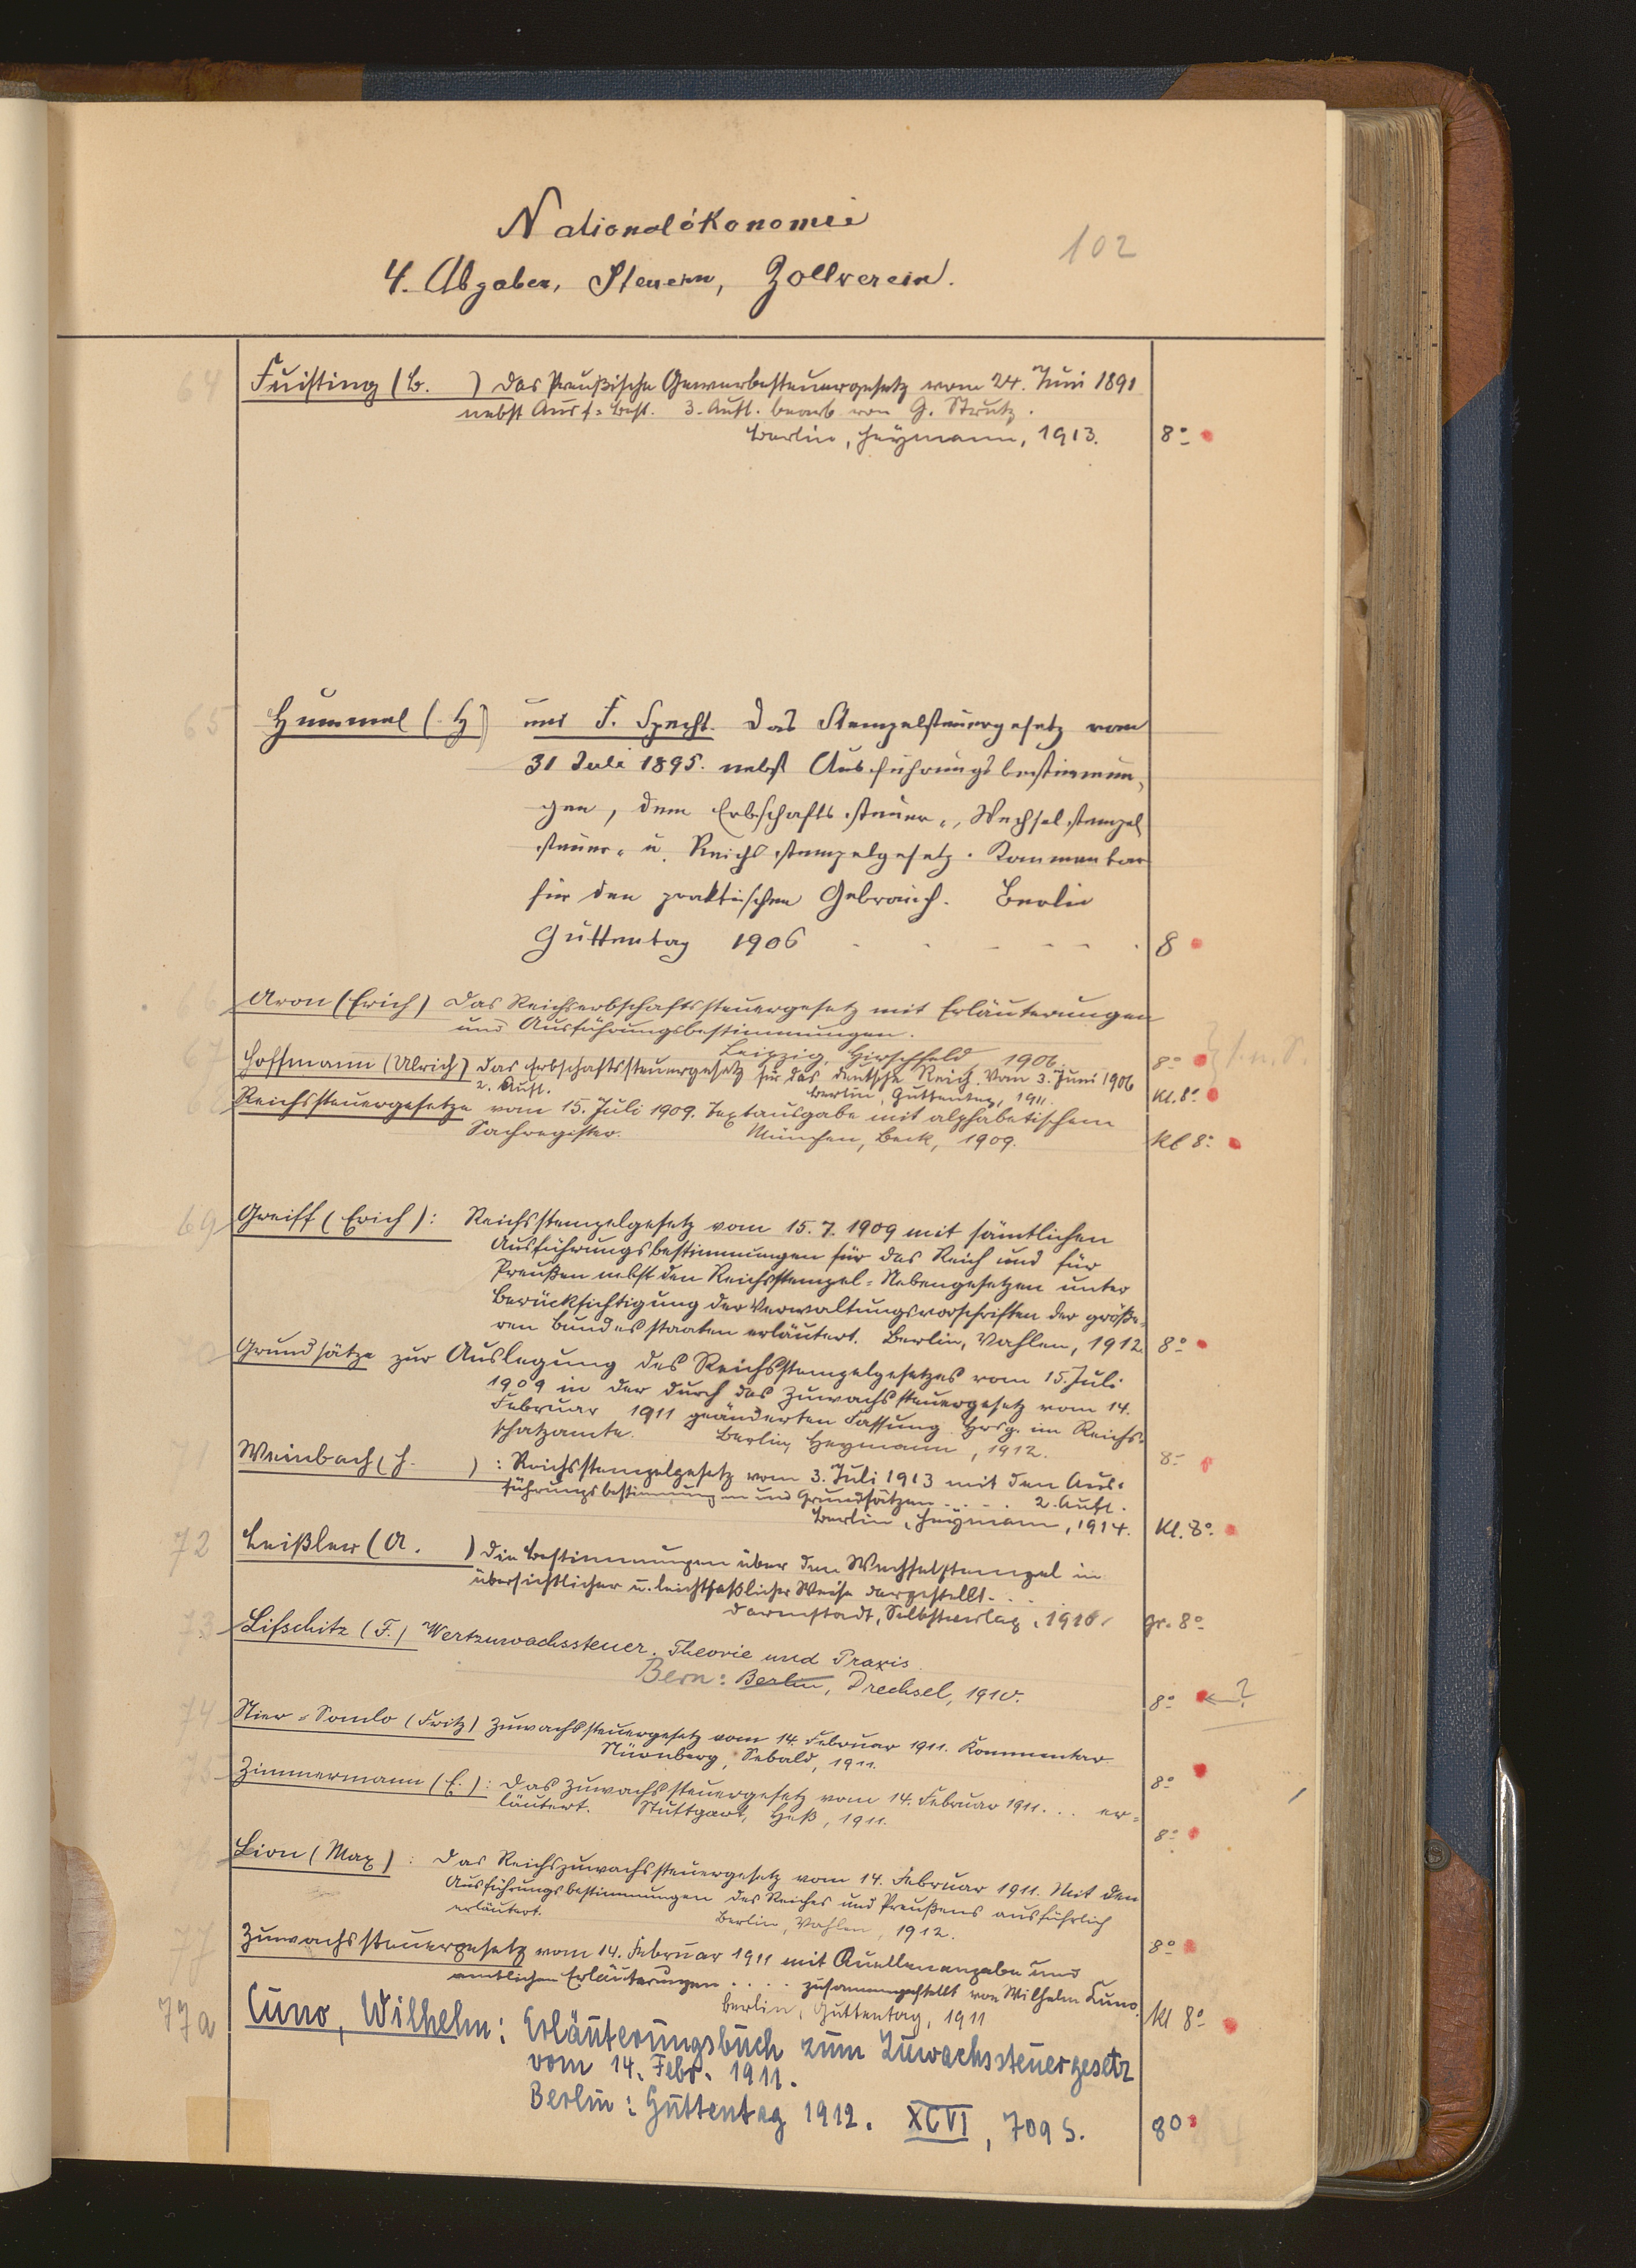 Nationalökonomie
102
4. Abgaben, Steuern, Zollverein.
64 Fuisting (B. ) Das Preußische Gewerbesteuergesetz vom 24. Juni 1891
nebst Ausf.=Best. 3. Aufl. bearb. von G. Strutz.
Berlin, Heymann, 1913. 8°
65 Hummel (H) und F. Specht. Das Stempelsteuergesetz vom
31 Juli 1895. nebst Ausführungsbestimmun-
gen, dem Erbschaftssteuer-, Wechselstempel
steuer- u. Reichsstempelgesetz. Kommentar
für den praktischen Gebrauch. Berlin
Guttentag 1906 8
66 Aron (Erich) Das Reichserbschaftssteuergesetz mit Erläuterungen
und Ausführungsbestimmungen.
Leipzig, Hirschfeld 1906. 8°
67 Hoffmann (Ulrich) Das Erbschaftssteuergesetz für das deutsche Reich. Vom 3. Juni 1906
2. Aufl. Berlin, Guttentag, 1911. Kl. 8°
68 Reichssteuergesetze vom 15. Juli 1909. Textausgabe mit alphabetischem
Sachregister. München, Beck, 1909. Kl 8°
69 Greiff (Erich): Reichsstempelgesetz vom 15.7.1909 mit sämtlichen
Ausführungsbestimmungen für das Reich und für
Preußen nebst den Reichsstempel=Nebengesetzen unter
Berücksichtigung der Verwaltungsvorschriften der größe-
ren Bundesstaaten erläutert. Berlin, Vahlen, 1912. 8°
70 Grundsätze zur Auslegung des Reichsstempelgesetzes vom 15. Juli
1909 in der durch das Zuwachssteuergesetz vom 14.
Februar 1911 geänderten Fassung. Hrsg. im Reichs-
schatzamte. Berlin, Heymann, 1912. 8°
71 Weinbach (H. ): Reichsstempelgesetz vom 3. Juli 1913 mit den Aus-
führungsbestimmungen und Grundsätzen .... 2. Aufl.
Berlin, Heymann, 1914. Kl. 8°
72 Leißler (A. ) Die Bestimmungen über den Wechselstempel in
übersichtlicher u. leichtfaßlicher Weise dargestellt...
Darmstadt, Selbstverlag, 1910. Gr. 8°
73 Lifschitz (F.) Wertzuwachssteuer. Theorie und Praxis
Bern: Berlin, Drechsel, 1910. 8° ?
74 Stier=Somlo (Fritz) Zuwachssteuergesetz vom 14. Februar 1911. Kommentar
Nürnberg, Sebald, 1911. 8°
75 Zimmermann (E.): Das Zuwachssteuergesetz vom 14. Februar 1911... er=
läutert. Stuttgart, Heß, 1911. 8°
76 Lion (Max): Das Reichszuwachssteuergesetz vom 14. Februar 1911. Mit den
Ausführungsbestimmungen des Reiches und Preußens ausführlich
erläutert. Berlin, Vahlen, 1912. 8°
77 Zuwachssteuergesetz vom 14. Februar 1911 mit Quellenangabe und
amtlichen Erläuterungen .... zusammengestellt von Wilhelm Cuno.
Berlin, Guttentag, 1911 Kl 8°
77a Cuno, Wilhelm: Erläuterungsbuch zum Zuwachssteuergesetz
vom 14. Febr. 1911.
Berlin: Guttentag 1912. XCVI, 709 S. 8°